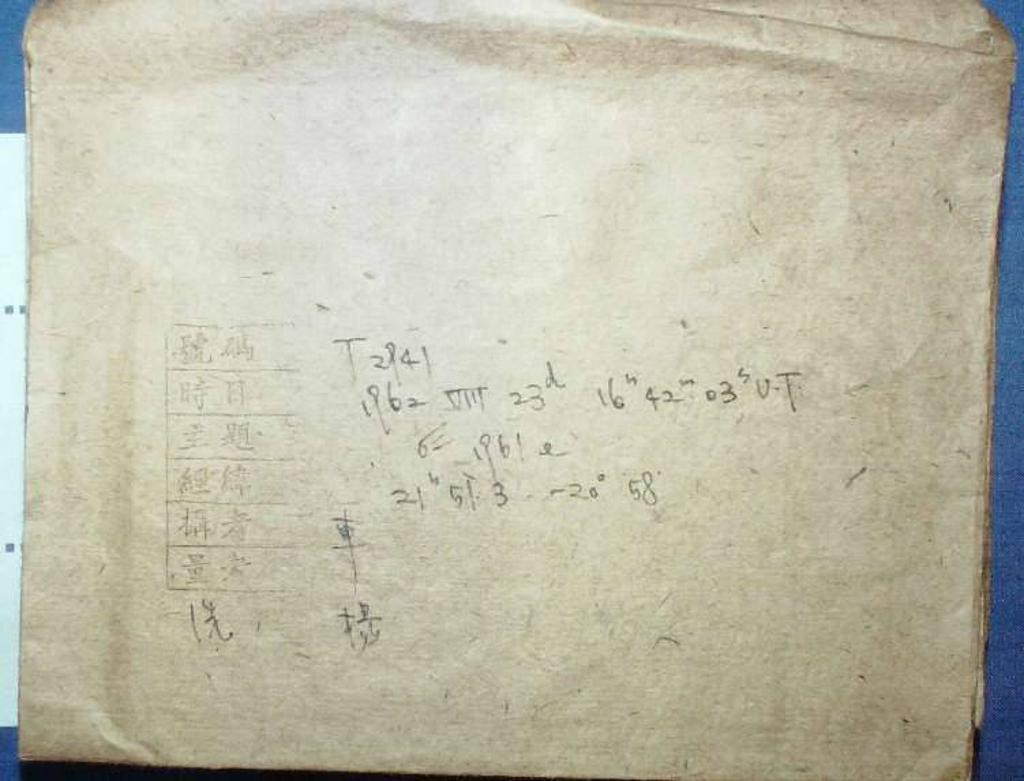 號碼 T 2941
時日 1962 VIII 23d 16h 42m 03s U.T.
主題 1961 e
經緯 21h 51.3 -20° 58'
攝者 車
量者
洗 楊